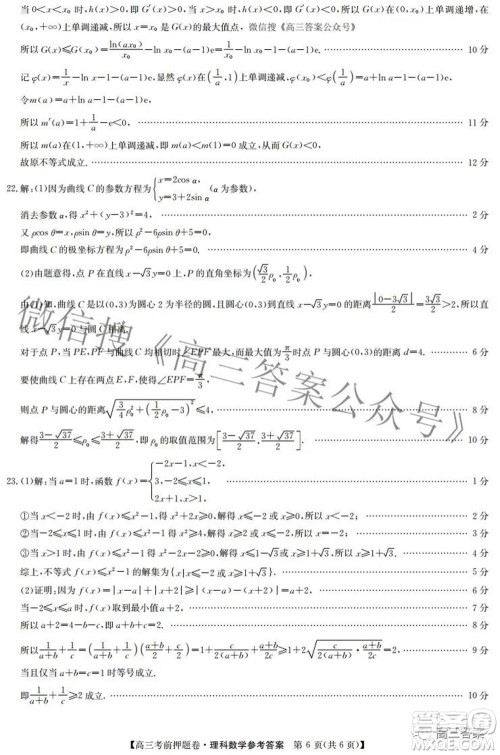 当0<x<x₀时,h(x)>0,即G′(x)>0,当x>x₀时,h(x)<0,即G′(x)<0,所以G(x)在(0,x₀)上单调递增,在
(x₀,+∞)上单调递减,所以x=x₀是G(x)的最大值点,微信搜《高三答案公众号》
所以G(x)≤G(x₀)=ln(ax₀)/x₀-ln x₀-(a-1)e=1/x₀-ln x₀-(a-1)e. 10分
记φ(x)=1/x-ln x-(a-1)e,显然φ(x)在(1/a,1)上单调递减,所以G(x)<φ(1/a)=a+ln a-(a-1)e,
令m(a)=a+ln a-1-(a-1)e,
所以m′(a)=1+1/a-e<0, 11分
所以m(a)在(1,+∞)上单调递减,即m(a)<m(1)=0,从而G(x)<0,
故原不等式成立. 12分
22.解:(1)因为曲线C的参数方程为{x=2cos α, y=3+2sin α (α为参数),
消去参数α,得x²+(y-3)²=4. 2分
又ρcos θ=x,ρsin θ=y,所以ρ²-6ρsin θ+5=0.
即曲线C的极坐标方程为ρ²-6ρsin θ+5=0. 4分
(2)由题意得,点P在直线x-√3y=0上,所以点P的直角坐标为(√3/2ρ₀,1/2ρ₀).
由(1)知,曲线C是以(0,3)为圆心2为半径的圆,且圆心(0,3)到直线x-√3y=0的距离|0-3√3|/2=3√3/2>2,所以直
线x-√3y=0与圆C相离.
对于点P,当PE,PF与曲线C均相切时∠EPF最大.而当∠EPF为π/3时点P到圆心(0,3)的距离d=4. 6分
要使曲线C上存在两点E,F,使得∠EPF=π/3,
则点P与圆心的距离√(3/4ρ₀²+(1/2ρ₀-3)²)≤4. 8分
解得(3-√37)/2≤ρ₀≤(3+√37)/2,即ρ₀的取值范围为[(3-√37)/2,(3+√37)/2]. 10分
23.(1)解:当a=1时,函数f(x)={-2x-1,x<-2, 3,-2≤x≤1, 2x+1,x>1. 1分
①当x<-2时,由f(x)≤x²-1得x²+2x≥0,解得x<-2; 2分
②当-2≤x≤1时,由f(x)≤x²-1得x²≥4,解得x=-2; 3分
③当x>1时,由f(x)≤x²-1得x²-2x-2≥0,解得x≤1-√3或x≥1+√3.所以x≥1+√3. 4分
综上,不等式f(x)≤x²-1的解集为{x|x≤-2或x≥1+√3}. 5分
(2)证明:因为f(x)=|x-a|+|x+2|≥|(x-a)-(x+2)|=a+2, 6分
当-2≤x≤a时,f(x)取到最小值a+2. 7分
所以a+2=4-b-c,即a+b+c=2. 8分
所以1/(a+b)+1/c=(1/(a+b)+1/c)((a+b)/2+c/2)=1+c/(2(a+b))+(a+b)/(2c)≥1+2√(c/(2(a+b))·(a+b)/(2c))=2, 9分
当且仅当a+b=c=1时等号成立.
即1/(a+b)+1/c≥2成立. 10分
【高三考前押题卷·理科数学参考答案 第6页(共6页)】
微信搜《高三答案公众号》
高三答案